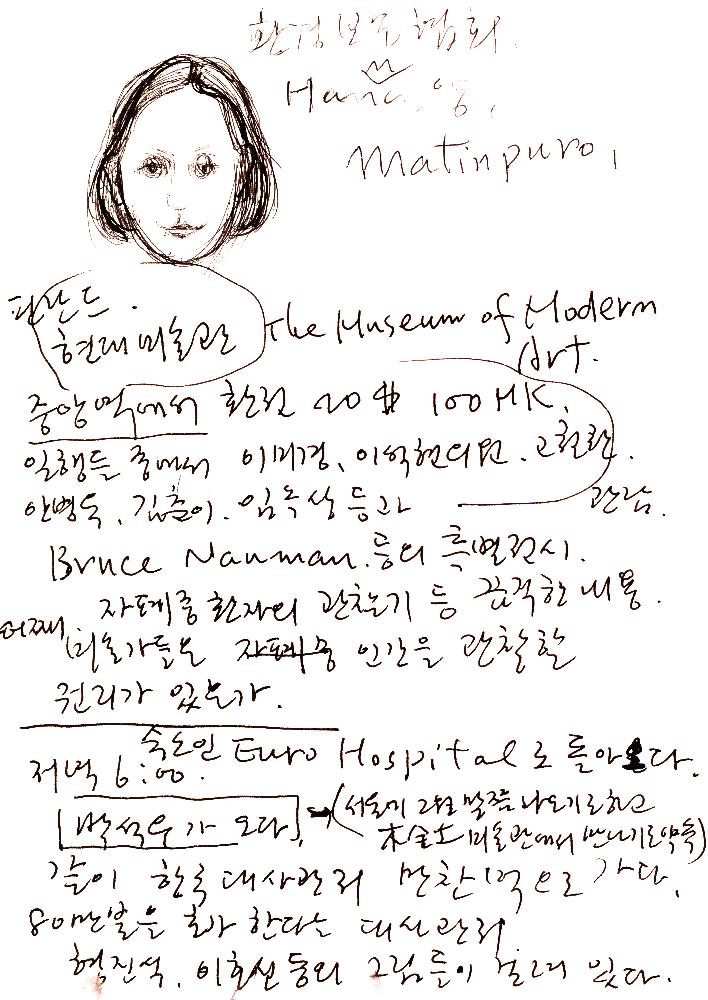 환경보존협회.
Hana. 영.
Matinpuro,
핀란드.
현대미술관 The Museum of Modern
Art.
중앙역에서 환전 20$ 100 MK.
일행들 중에서 이미경, 이석현의원. 고철환.
안병옥. 김춘이. 임옥상 등과 관람.
Bruce Nauman. 등의 특별전시.
자폐증 환자의 관찰기 등 끔적한 내용.
어째. 미술가들은 인간을 관찰할
권리가 있는가.
저녁 6:00. 숙소인 Euro Hospital로 돌아오다.
[박석우가 오다]. → (서울에 2월 말쯤 나오기로 하고
木金土 미술관에서 만나기로 약속)
같이 한국대사관저 만찬 으로 가다.
80만불을 호가 한다는 대사관저
형진석, 이호신 등의 그림들이 걸려 있다.